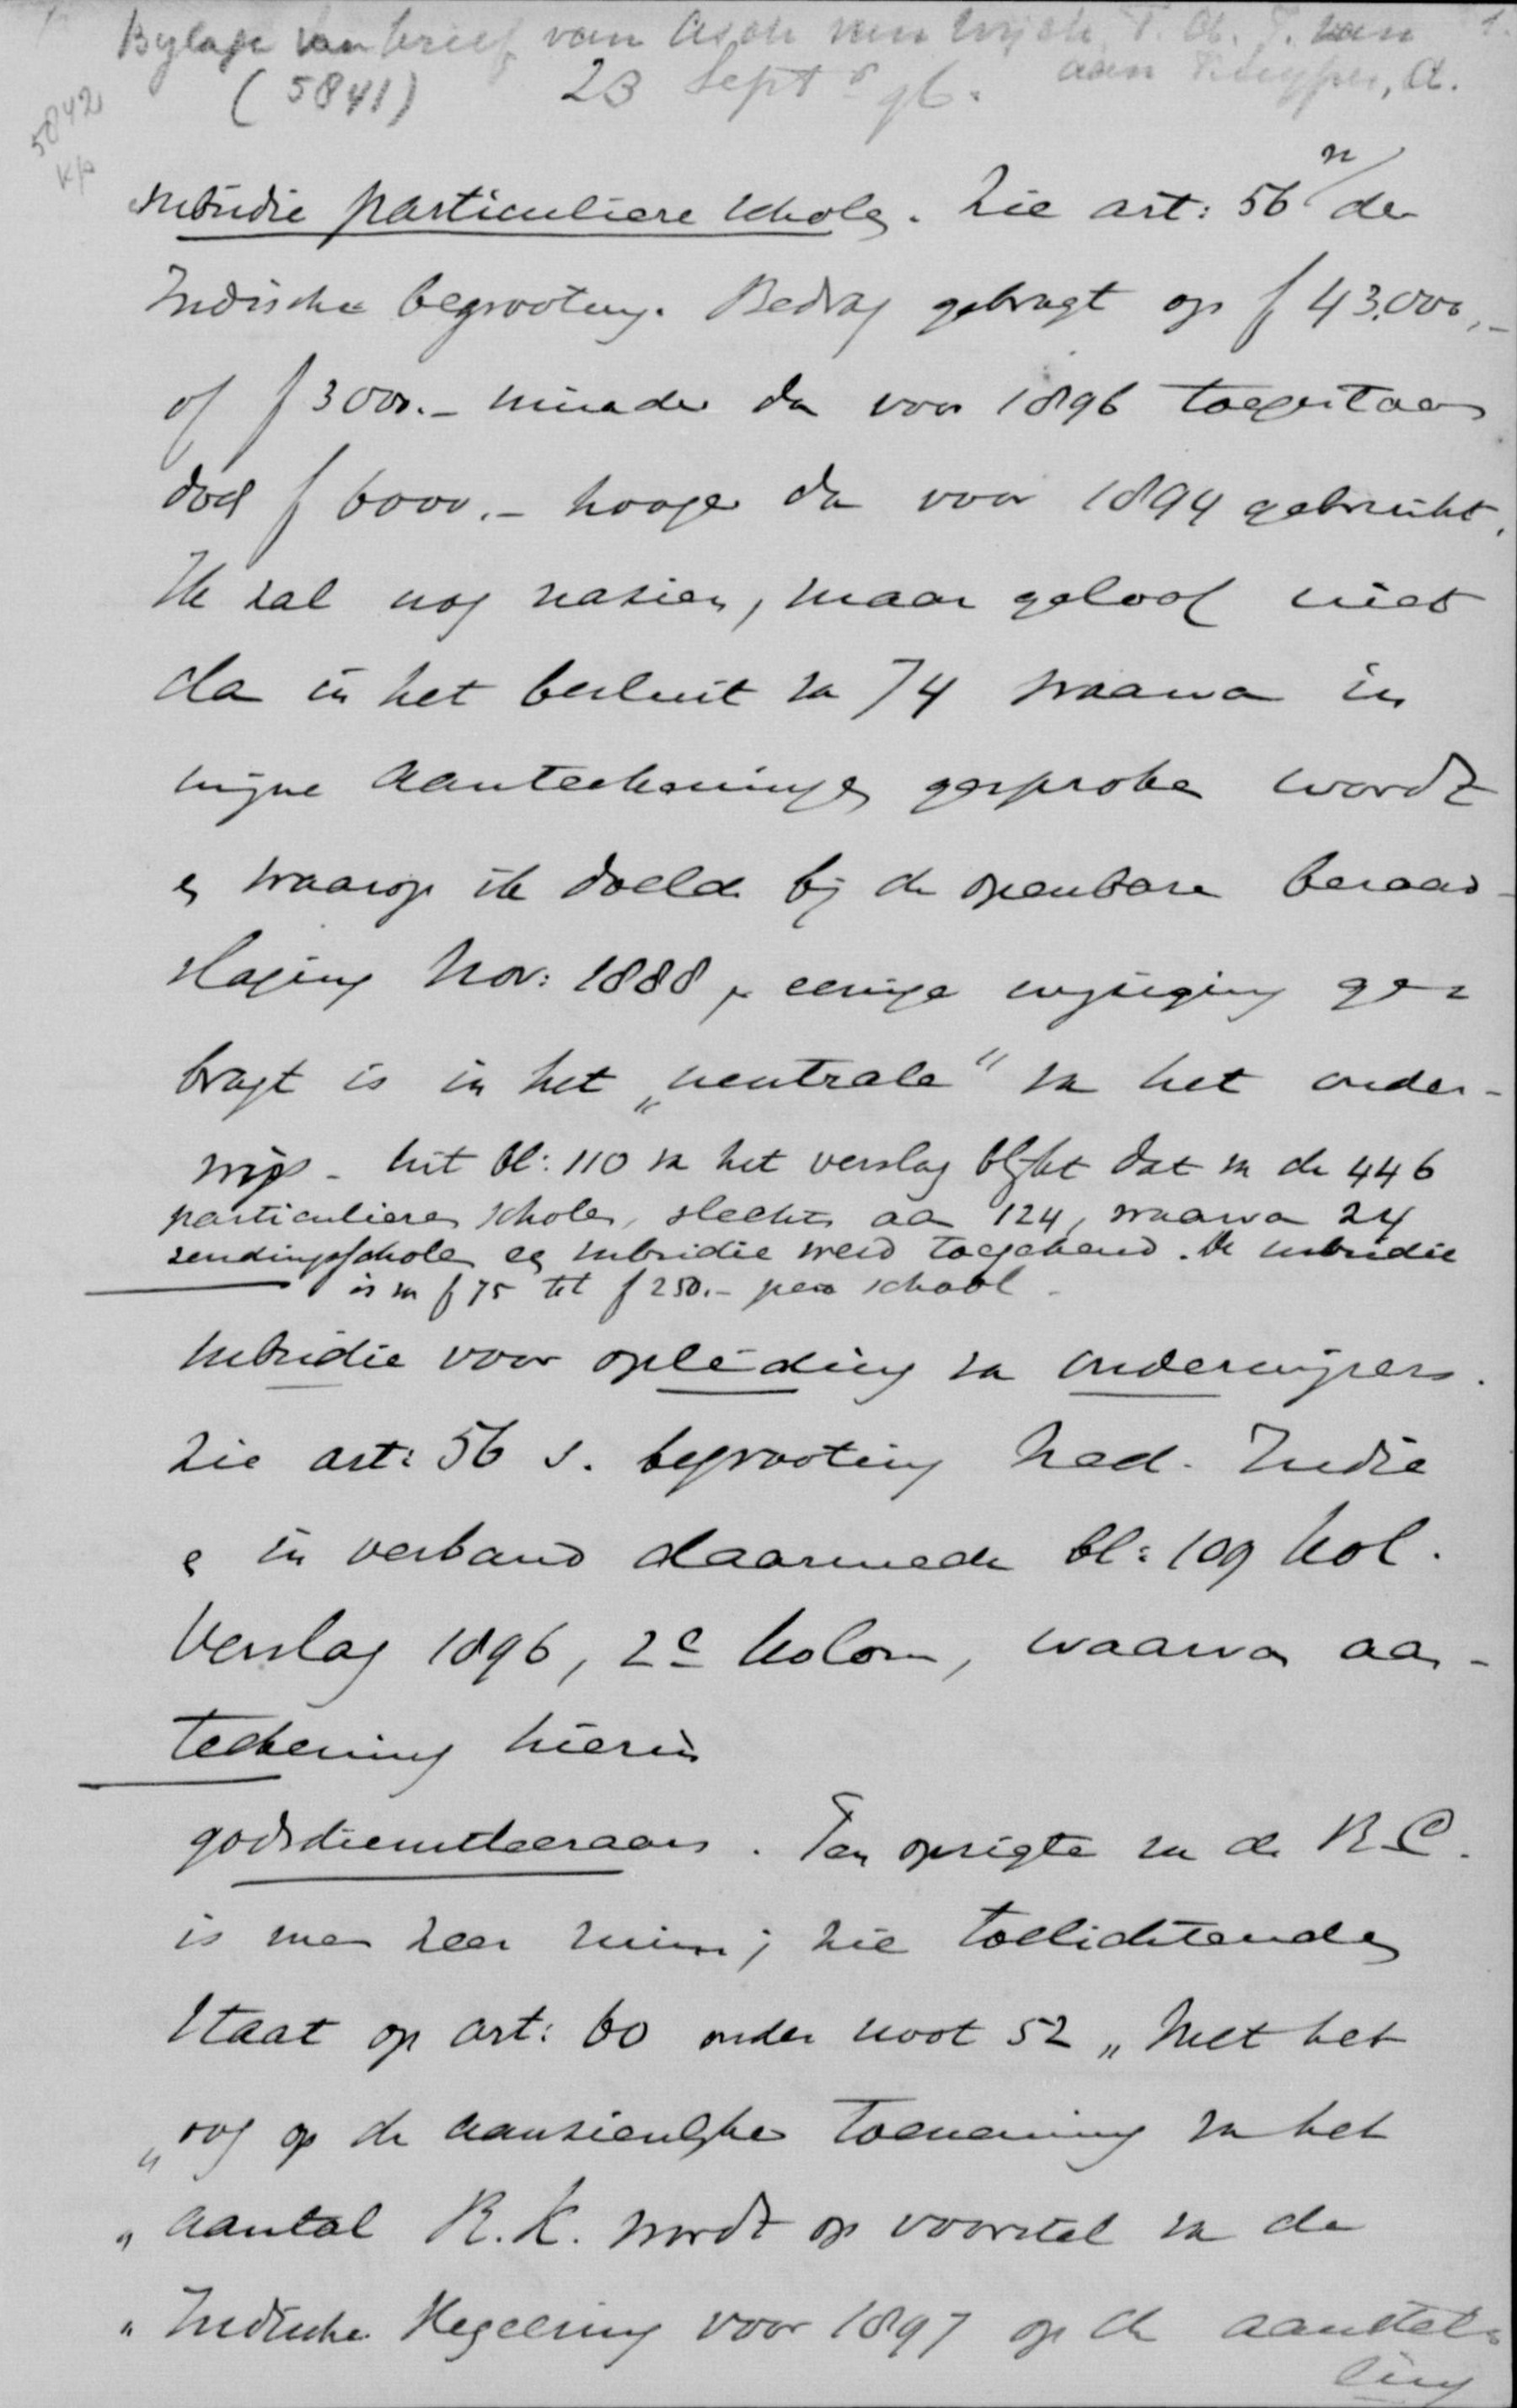 Bylage van brief van Asch van Wijck, T. A. J. van 1.
(5841) 23 Sept '96. aan Kuyper, A.
5842
Kp
subsidie particuliere scholen. Zie art: 56 n/ der
Indische begrooting. Bedrag gebragt op f 43.000,-
of f 3000.- minder dan voor 1896 toegestaan
doch f 6000.- hooger dan voor 1894 gebruikt.
Ik zal nog nazien, maar geloof niet
dat in het besluit van 74 waarvan in
mijne aanteekeningen gesproken wordt
en waarop ik doelde bij de openbare beraad-
slaging Nov: 1888, eenige wijziging ge-
bragt is in het „neutrale" van het onder-
wijs - Uit bl: 110 van het verslag blijkt dat van de 446
particuliere scholen, slechts aan 124, waarvan 24
zendingsscholen een subsidie werd toegekend. De subsidie
is van f 75 tot f 250.- per school.
Subsidie voor opleiding van onderwijzers.
Zie art: 56 s. begrooting Ned. Indie
en in verband daarmede bl: 109 Kol.
Verslag 1896, 2e kolom, waarvan aan-
teekening hierin
godsdienstleeraars. Ten opzigte van de R C.
is men zeer ruim; zie toelichtenden
Staat op art: 60 onder noot 52 „Met het
„oog op de aanzienlijke toeneming van het
„aantal R.K. wordt op voorstel van de
„Indische Regeering voor 1897 op de aanstel-
ling